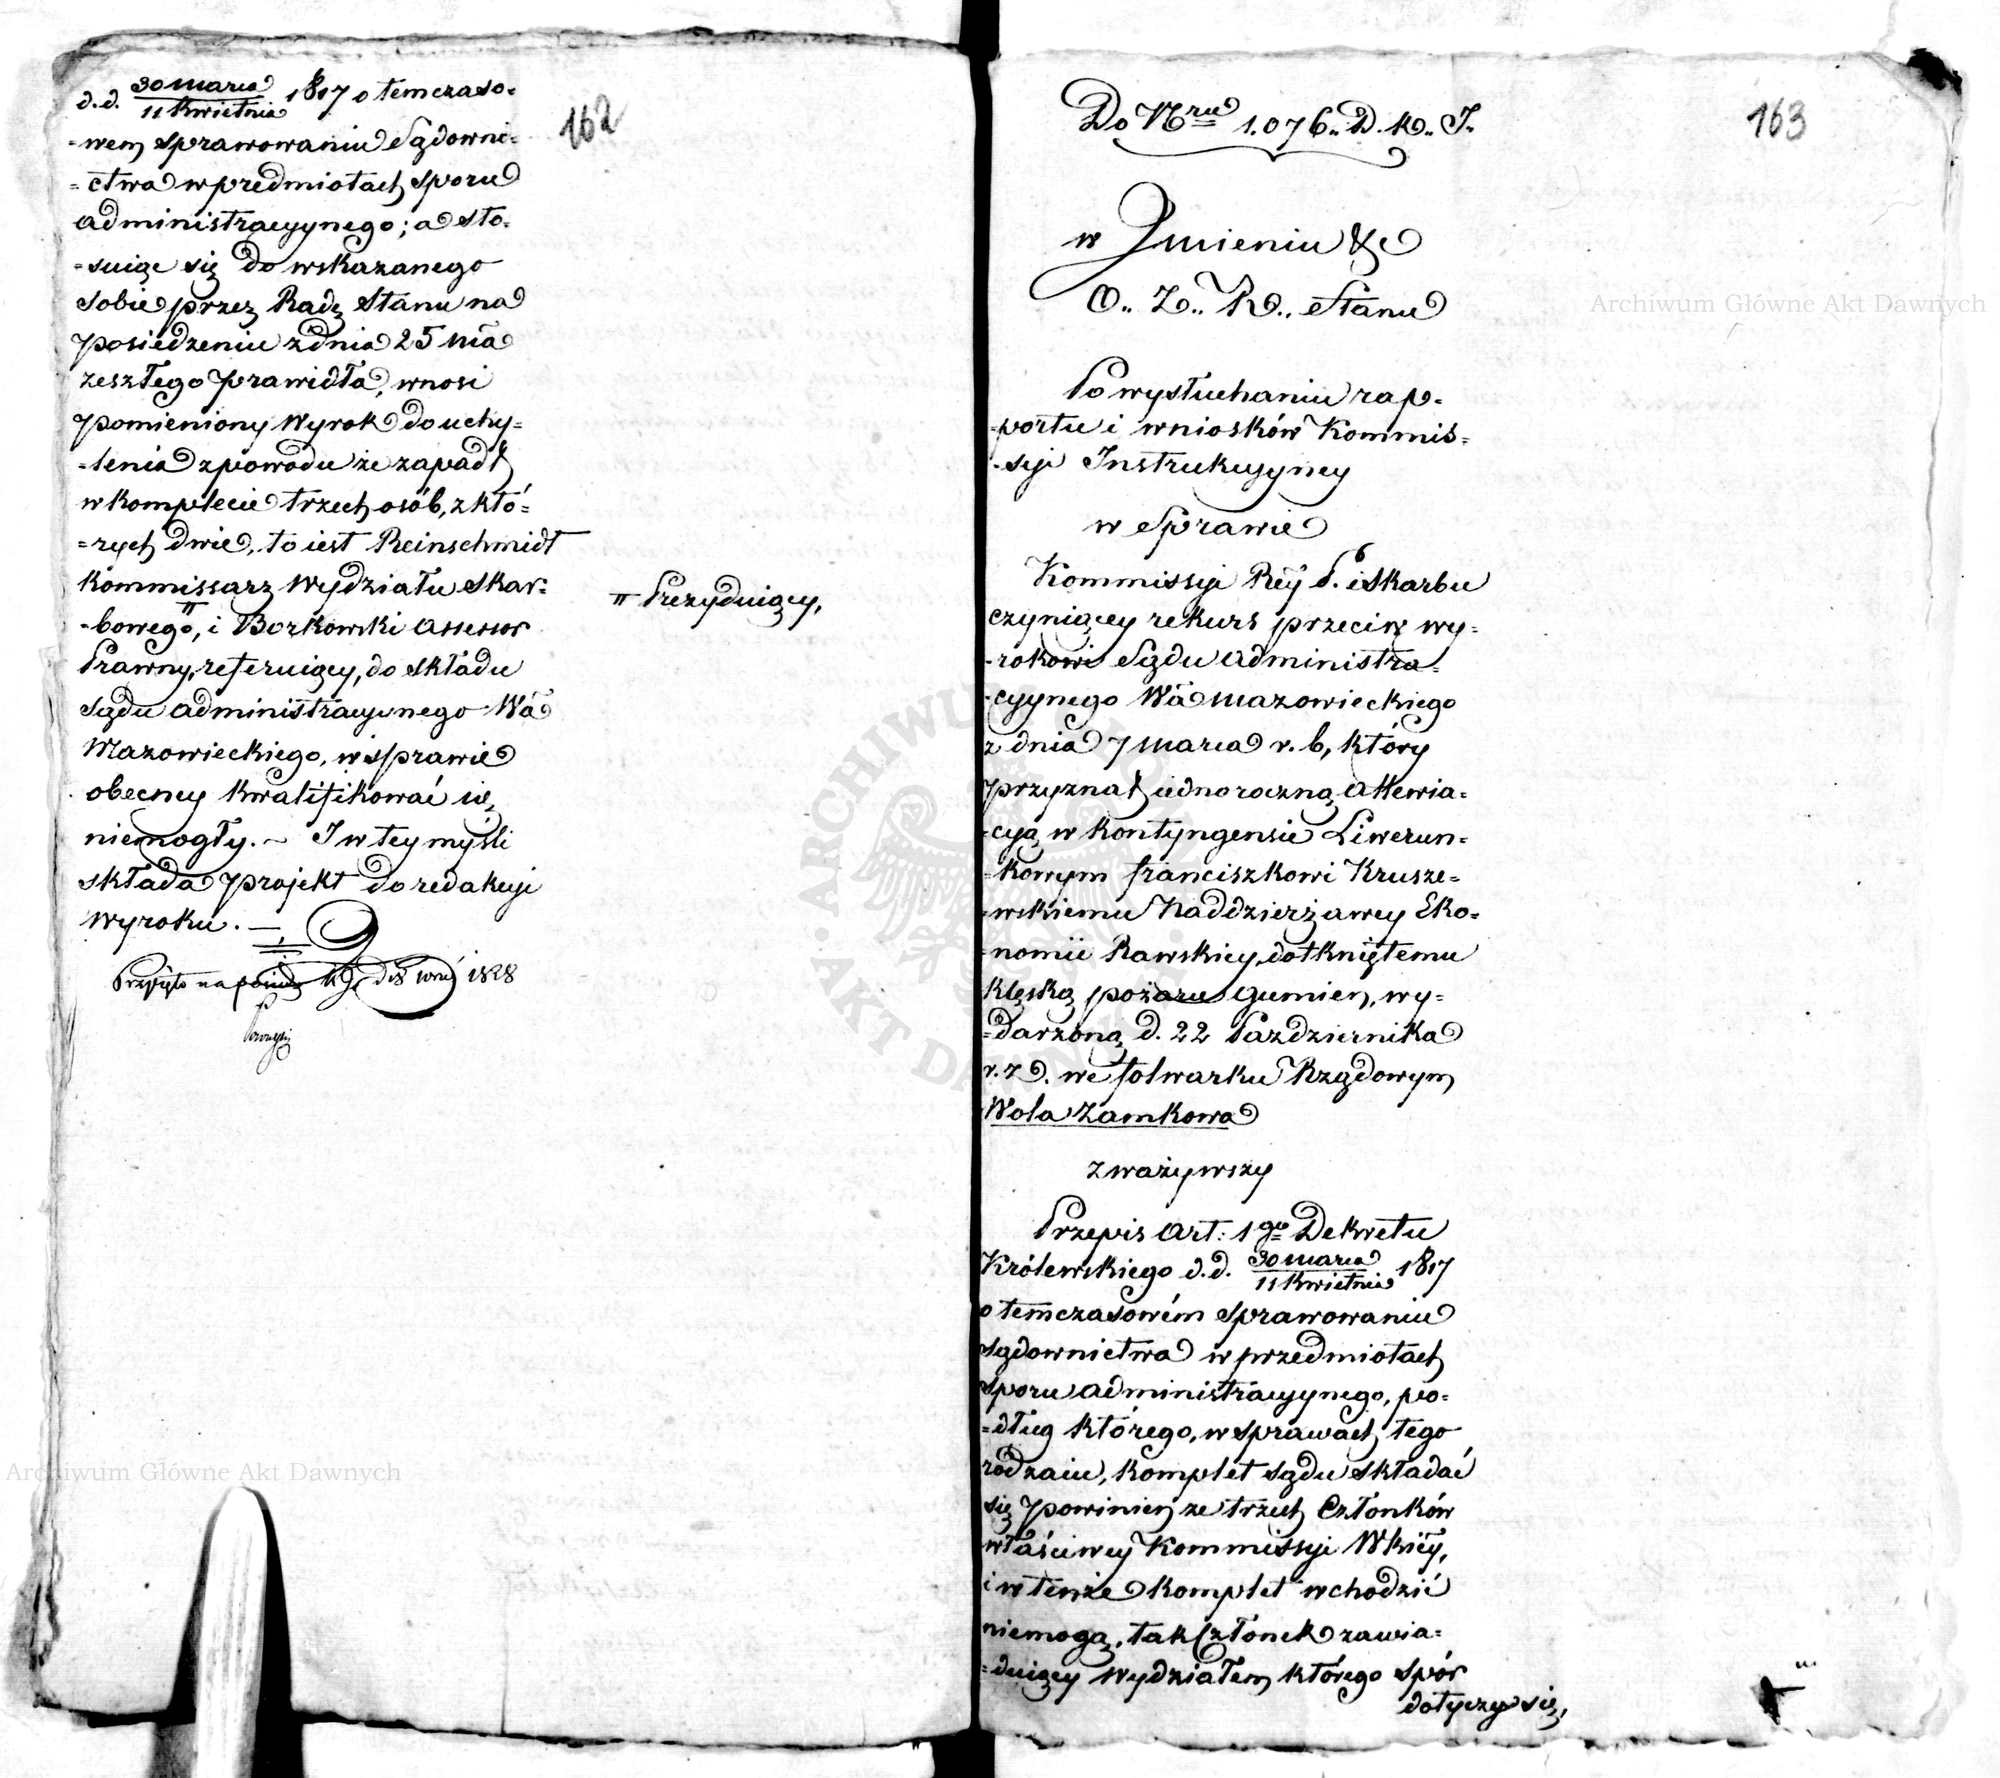 162
d. d. 30 Marca / 11 Kwietnia 1817 o temczaso-
-wem sprawowaniu Sądowni-
-ctwa w przedmiotach sporu
administracyynego; a sto-
-suiąc się do wskazanego
sobie przez Radę Stanu na
posiedzeniu z dnia 25 ma
zeszłego prawidła, wnosi
pomieniony Wyrok do uchy-
-lenia z powodu że zapadł
w komplecie trzech osób, z któ-
-rych dwie, to iest Reinschmidt
Kommissarz Wydziału Skar-
-bowego, i Borkowski Assessor
= Prezyduiący,
Prawny, referuiący, do składu
Sądu administracyynego Wa
Mazowieckiego, w sprawie
obecney kwalifikować się,
niemogły. — I w tey myśli
składa projekt do redakcyi
wyroku. —
Przyięto na posiedz 1828
163
Do Nru 1.076. D. K. I.
w Imieniu &c
O.. Z.. R.. Stanu
Po wysłuchaniu rap-
-portu i wniosków Kommis-
-syi Instrukcyyney
w Sprawie
Kommissyi Rey P. i Skarbu
czyniącey rekurs przeciw wy-
-rokowi Sądu Administra-
-cyynego Wa Mazowieckiego
z dnia 7 Marca r. b, który
przyznał iednoroczną allewia-
-cyą w kontyngensie Liwerun-
-kowym Franciszkowi Krusze-
-wskiemu Naddzierżawcy Eko-
-nomii Rawskiey, dotkniętemu
klęską pożaru gumien, wy-
-darzoną d. 22 Października
r. z. we folwarku Rządowym
Wola Zamkowa
zważywszy
Przepis Art: 1go Dekretu
Królewskiego d. d. 30 Marca / 11 Kwietnia 1817
o temczasowém sprawowaniu
sądownictwa w przedmiotach
sporu administracyynego, po-
-dług którego, w sprawach tego
rodzaiu, komplet sądu składać
się powinien ze trzech Członków
właściwey Kommissyi Wkiey,
i w tenże komplet wchodzić
niemogą, tak Członek zawia-
-duiący wydziałem którego spór
dotyczy się,
Archiwum Główne Akt Dawnych
Archiwum Główne Akt Dawnych